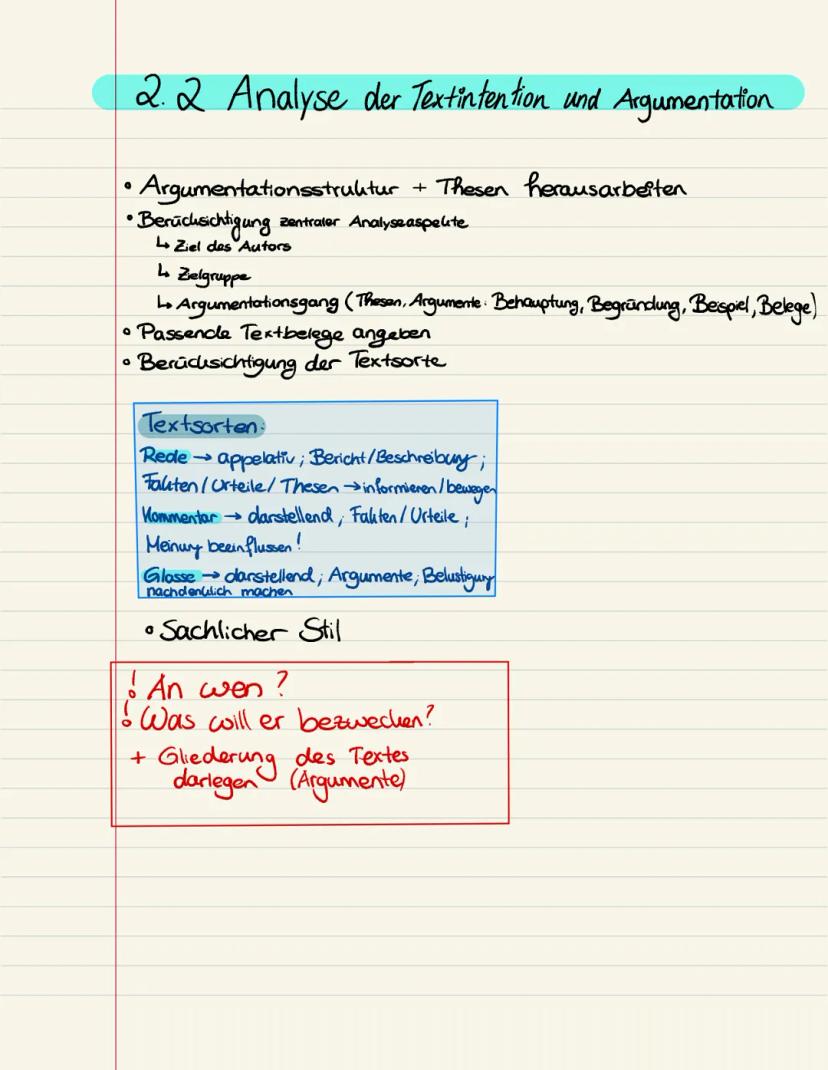 2.2 Analyse der Textintention und Argumentation
• Argumentationsstruktur + Thesen herausarbeiten
• Berücksichtigung zentraler Analyseaspekte
↳ Ziel des Autors
↳ Zielgruppe
↳ Argumentationsgang (Thesen, Argumente: Behauptung, Begründung, Beispiel, Belege)
• Passende Textbelege angeben
• Berücksichtigung der Textsorte
Textsorten:
Rede → appelativ; Bericht/Beschreibung;
Fakten/Urteile/Thesen → informieren/bewegen
Kommentar → darstellend; Fakten/Urteile;
Meinung beeinflussen!
Glosse → darstellend; Argumente; Belustigung
nachdenklich machen
• Sachlicher Stil
! An wen?
! Was will er bezwecken?
+ Gliederung des Textes
darlegen (Argumente)